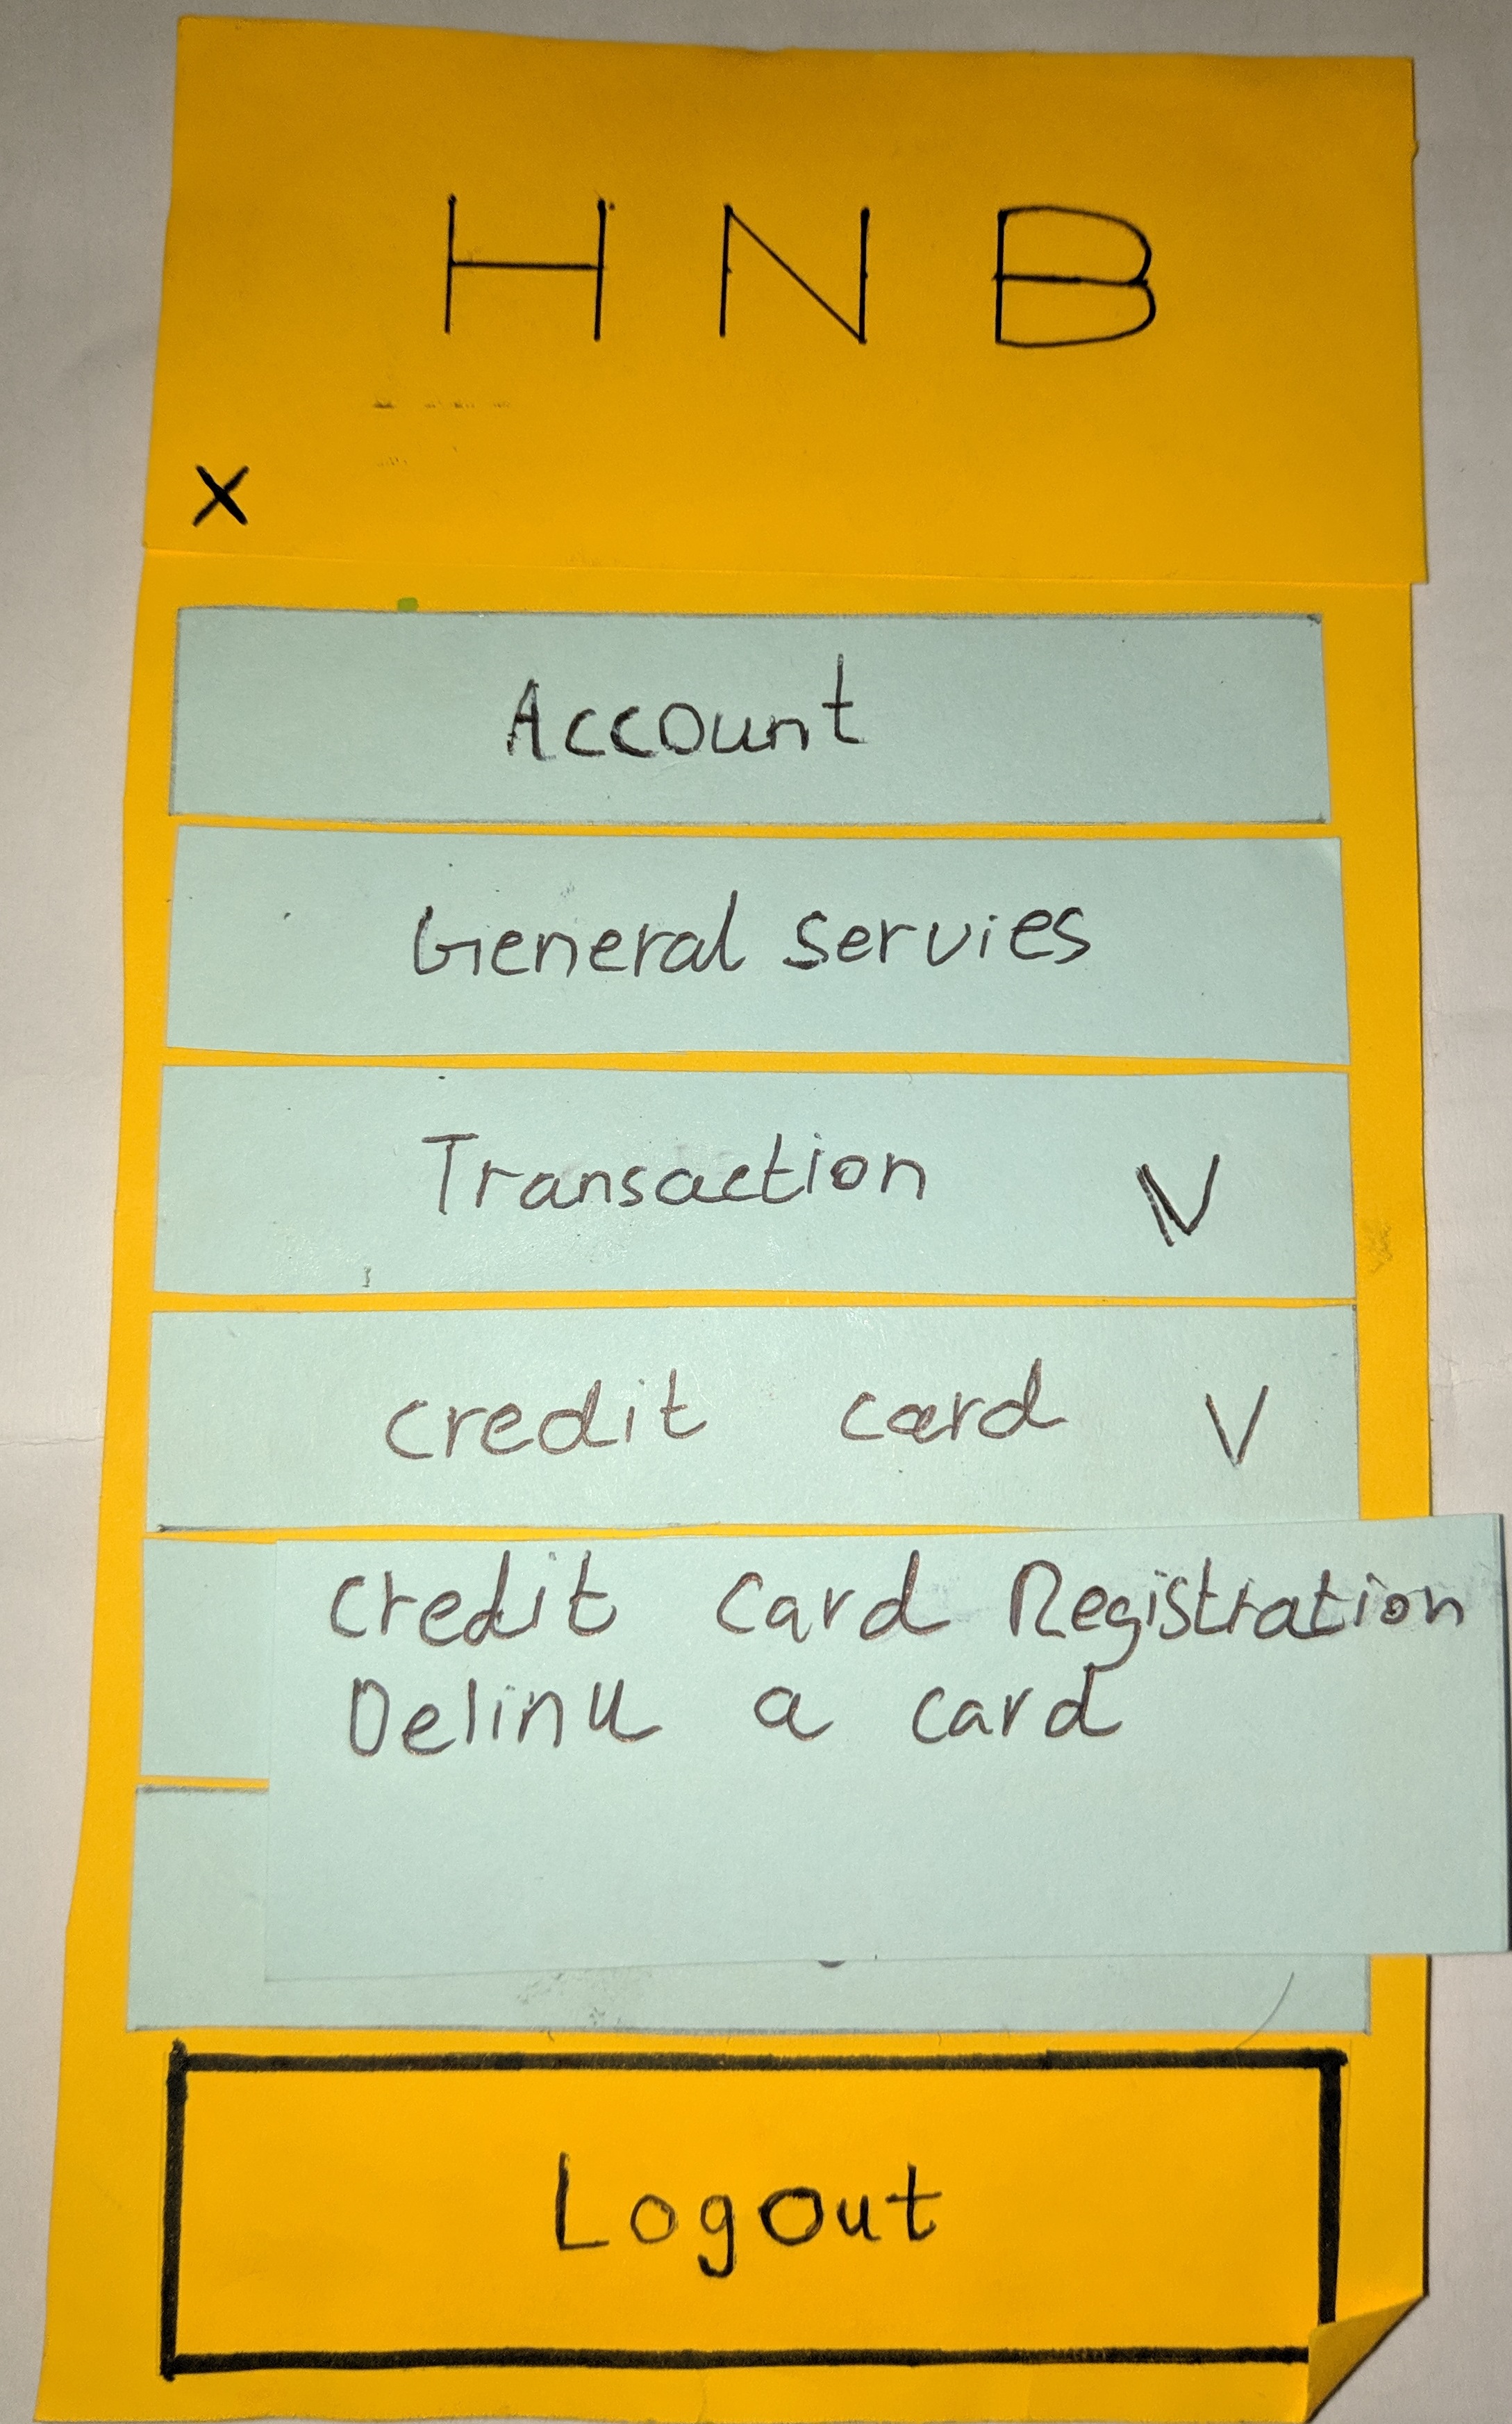 H N B
X
Account
General servies
Transaction V
credit card V
credit card Registration
Delink a card
Logout